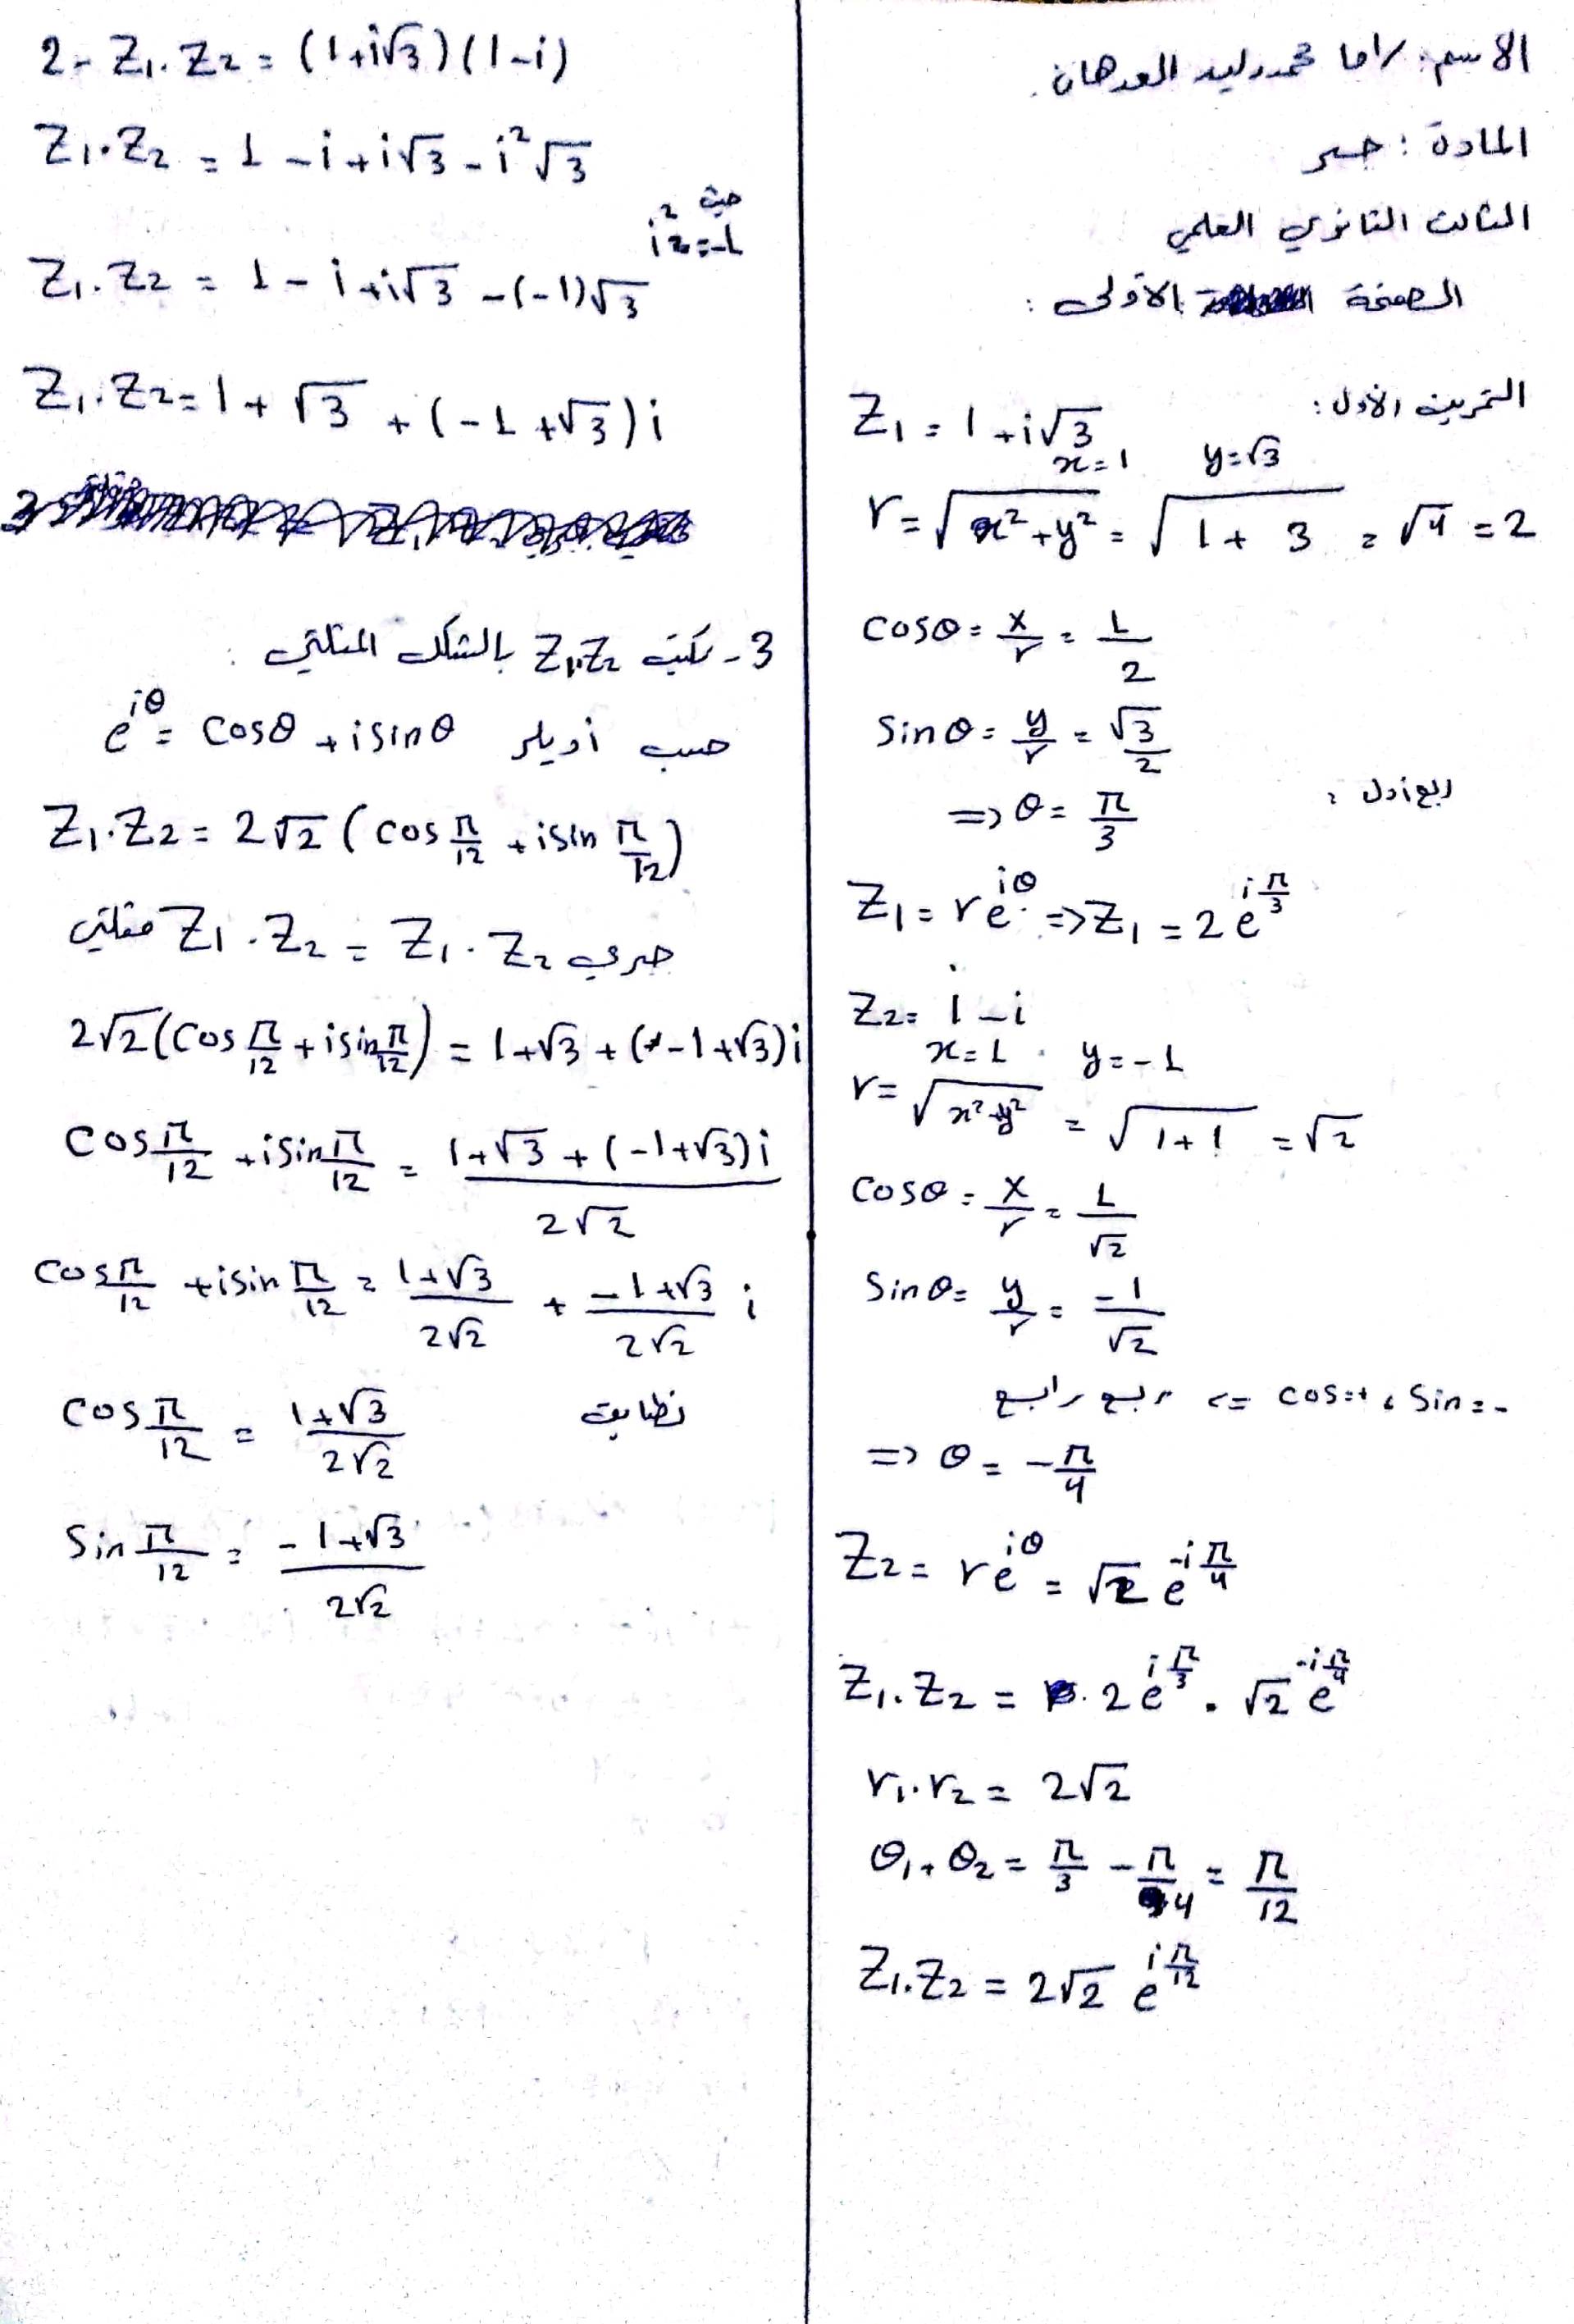 الاسم: راما محمد وليد العدهان.
المادة: جبر
الثالث الثانوي العلمي
الصفحة الأولى:
التمرين الأول:
Z₁ = 1 + i√3
x = 1 y = √3
r = √(x² + y²) = √(1 + 3) = √4 = 2
cosθ = x/r = 1/2
sinθ = y/r = √3/2
ربع أول
=> θ = π/3
Z₁ = r e^(iθ) => Z₁ = 2 e^(iπ/3)
Z₂ = 1 - i
x = 1 y = -1
r = √(x² + y²) = √(1 + 1) = √2
cosθ = x/r = 1/√2
sinθ = y/r = -1/√2
cos = + ، sin = - => ربع رابع
=> θ = -π/4
Z₂ = r e^(iθ) = √2 e^(-iπ/4)
Z₁.Z₂ = 2 e^(iπ/3) . √2 e^(-iπ/4)
r₁.r₂ = 2√2
θ₁ + θ₂ = π/3 - π/4 = π/12
Z₁.Z₂ = 2√2 e^(iπ/12)
2- Z₁.Z₂ = (1 + i√3)(1 - i)
Z₁.Z₂ = 1 - i + i√3 - i²√3
حيث i² = -1
Z₁.Z₂ = 1 - i + i√3 - (-1)√3
Z₁.Z₂ = 1 + √3 + (-1 + √3)i
3- نكتب Z₁.Z₂ بالشكل المثلثي
حسب أويلر e^(iθ) = cosθ + i sinθ
Z₁.Z₂ = 2√2 (cos π/12 + i sin π/12)
جبري Z₁.Z₂ = Z₁.Z₂ مثلثي
2√2 (cos π/12 + i sin π/12) = 1 + √3 + (-1 + √3)i
cos π/12 + i sin π/12 = (1 + √3 + (-1 + √3)i)/(2√2)
cos π/12 + i sin π/12 = (1 + √3)/(2√2) + (-1 + √3)/(2√2) i
cos π/12 = (1 + √3)/(2√2) نطابق
sin π/12 = (-1 + √3)/(2√2)